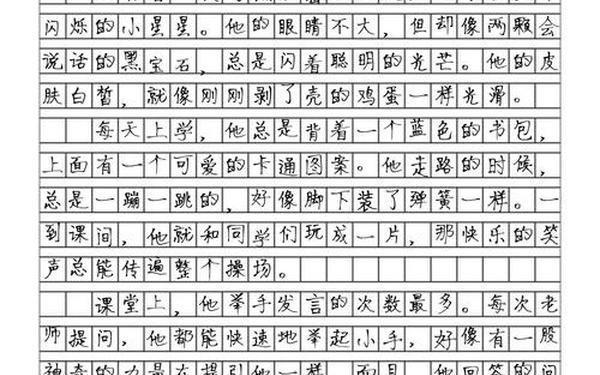 闪烁的小星星。他的眼睛不大，但却像两颗会
说话的黑宝石，总是闪着聪明的光芒。他的皮
肤白皙，就像刚刚剥了壳的鸡蛋一样光滑。
每天上学，他总是背着一个蓝色的书包，
上面有一个可爱的卡通图案。他走路的时候，
总是一蹦一跳的，好像脚下装了弹簧一样。一
到课间，他就和同学们玩成一片，那快乐的笑
声总能传遍整个操场。
课堂上，他举手发言的次数最多。每次老
师提问，他都能快速地举起小手，好像有一股
神奇的力量在指引他一样。而且，他回答的问